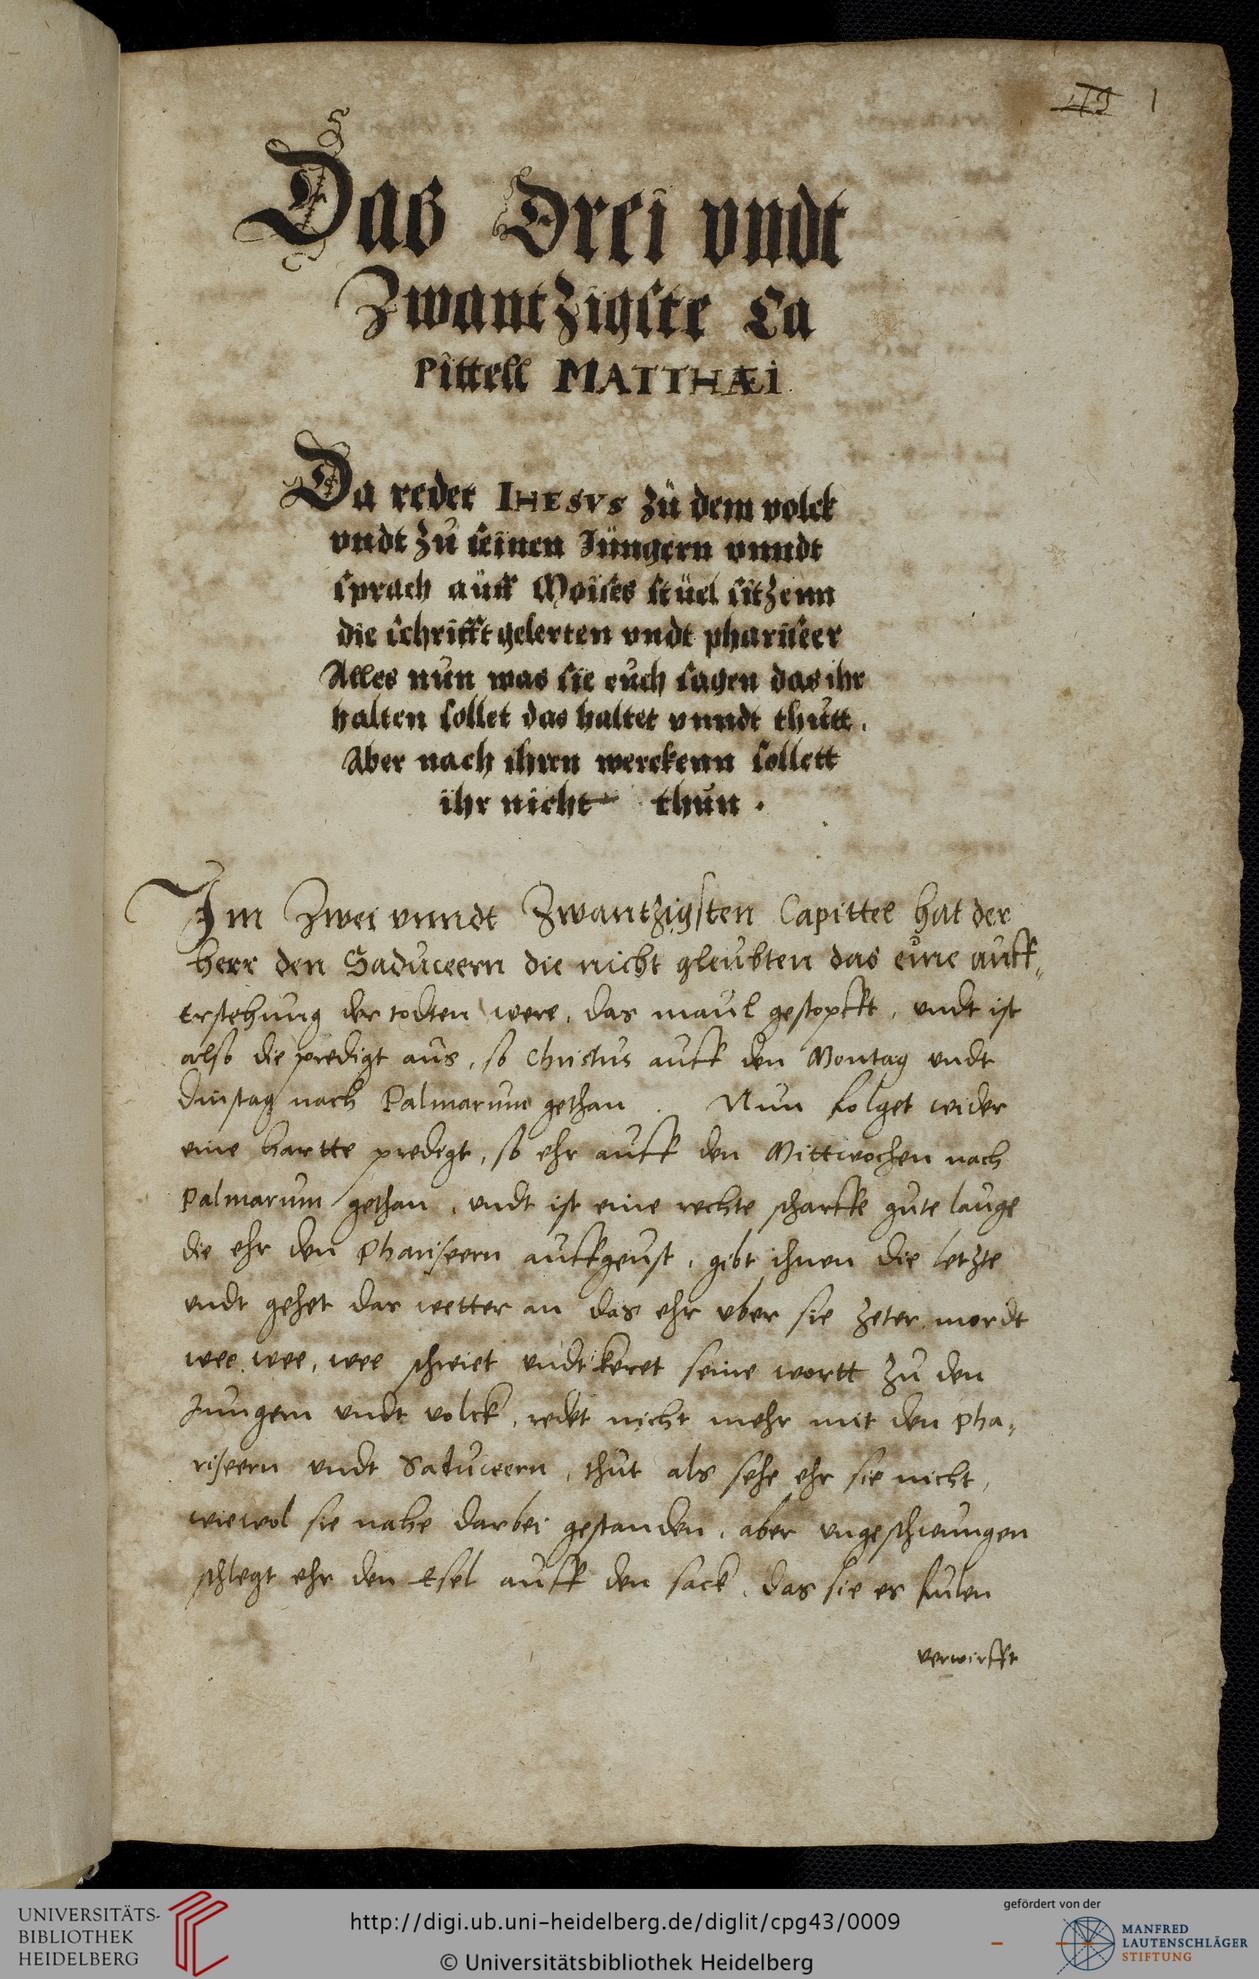 1
Das Drei vndt
Zwantzigste Ca
Pittell MATTHÆI
Da redet IHESVS zu dem volck
vndt zu seinen Jüngern vnndt
sprach auff Moises stuel sitzenn
die schrifftgelerten vndt phariseer
Alles nun was sie euch sagen das ihr
halten sollet das haltet vnndt thutt.
Aber nach ihren werckenn sollett
ihr nicht thun.
Im Zwei vnndt Zwantzigsten Capittel hat der
herr den Saduceern die nicht gleubten das eine auff-
Erstehung der todten were, das maul gestopfft, vndt ist
also die predigt aus, so Christus auff den Montag vndt
Dinstag nach Palmarum gethan. Nun folget wider
eine hartte predigt, so ehr auff den Mittwochen nach
Palmarum gethan, vndt ist eine rechte scharffe gute lauge
die ehr den Phariseern auffgeust, gibt ihnen die letzte
vndt gehet das wetter an das ehr vber sie zeter mordt
wee, wee, wee schreiet vndt keret seine wortt zu den
Jungern vndt volck, redet nicht mehr mit den Pha-
riseern vndt Saduceern, thut als sehe ehr sie nicht,
wiewol sie nahe darbei gestanden, aber vngeschwungen
schlegt ehr den Esel auff den sack, das sie es fulen
verwirfft
UNIVERSITÄTS-
BIBLIOTHEK
HEIDELBERG
http://digi.ub.uni-heidelberg.de/diglit/cpg43/0009
© Universitätsbibliothek Heidelberg
gefördert von der
MANFRED
LAUTENSCHLÄGER
STIFTUNG